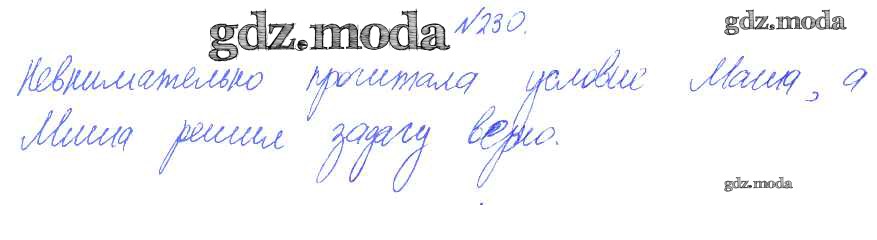 gdz.moda №230. gdz.moda
Невнимательно прочитала условие Маша, а
Миша решил задачу верно.
gdz.moda